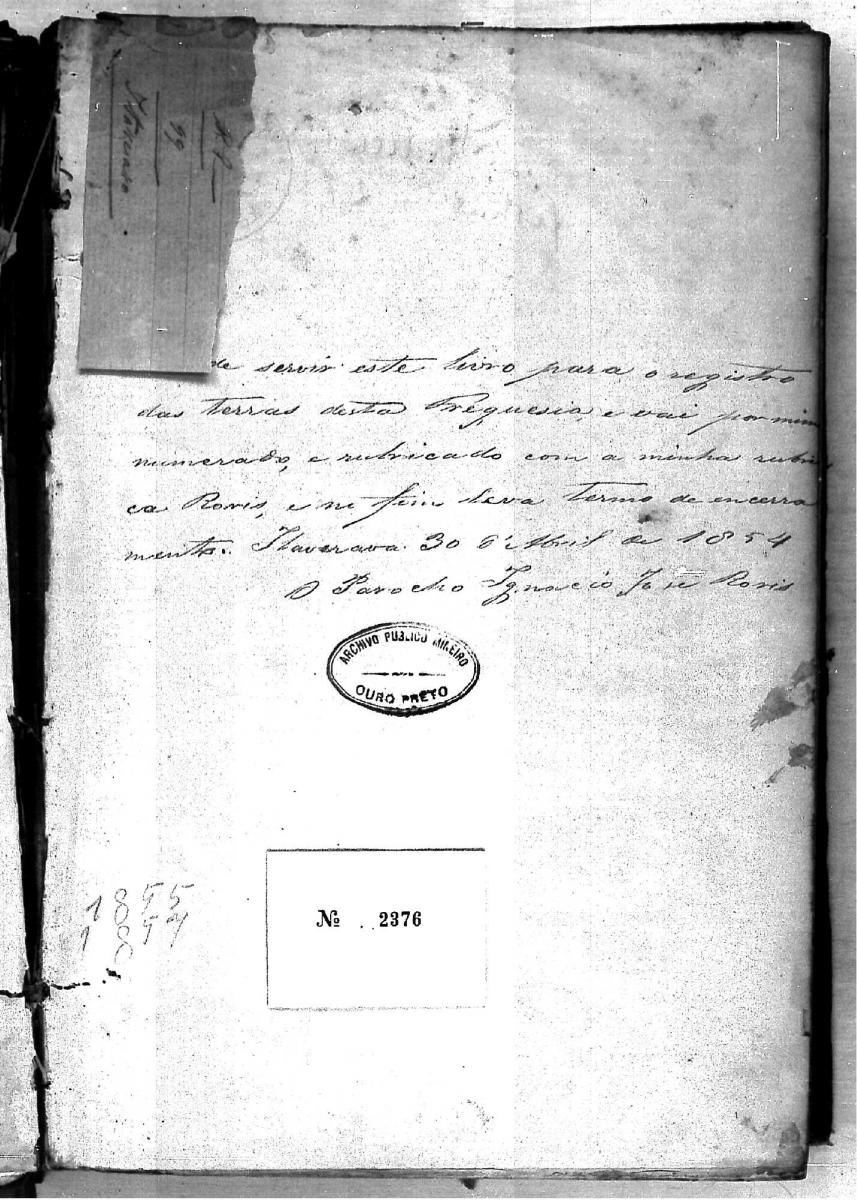 99
Itaverava
de servir este livro para o registro
das terras desta Freguesia, e vai por mim
numerado, e rubricado com a minha rubri
ca Roris, e no fim leva termo de encerra
mento. Itaverava 30 d'Abril de 1854
O Parocho Ignacio José Roris
ARCHIVO PUBLICO MINEIRO
OURO PRETO
Nº 2376
1855
1857